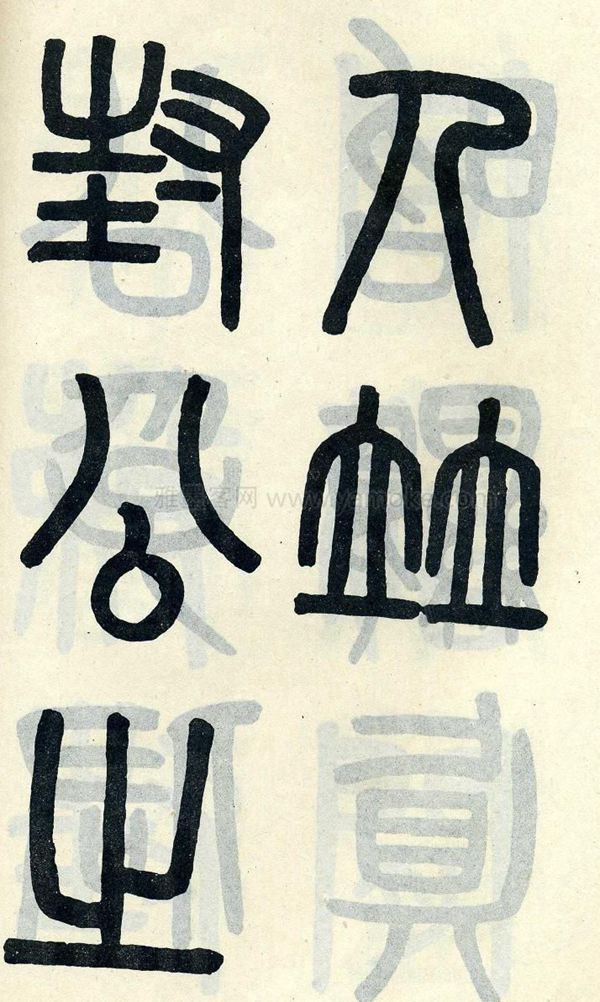 人竝
封公之
雅墨客网 www.yamoke.com